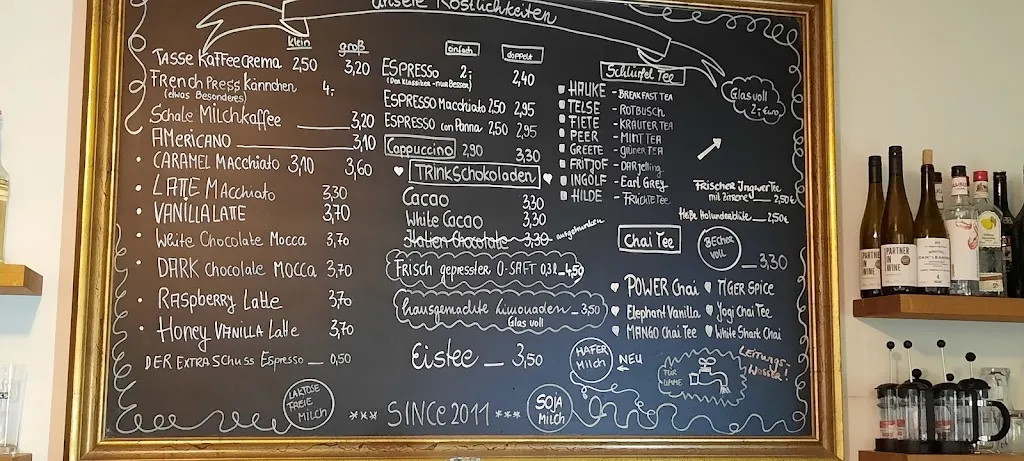 unsere Köstlichkeiten
klein groß
TASSE KAFFEECREMA 2,50 3,20
FRENCH PRESS Kännchen 4,-
(etwas Besonderes)
Schale Milchkaffee 3,20
AMERICANO 3,10
• CARAMEL Macchiato 3,10 3,60
• LATTE MAcchiato 3,30
• VANILLA LATTE 3,70
• White Chocolate Mocca 3,70
• DARK chocolate Mocca 3,70
• RASPBERRY Latte 3,70
• Honey VANILLA Latte 3,70
DER EXTRA SCHUSS Espresso 0,50
LAKTOSE FREIE MILCH
einfach doppelt
ESPRESSO 2,- 2,40
(DER Klassiker - nur Besser)
ESPRESSO Macchiato 2,50 2,95
ESPRESSO con Panna 2,50 2,95
Cappuccino 2,90 3,30
♥ TRINKSCHOKOLADEN ♥
Cacao 3,30
White Cacao 3,30
Italien Chocolate 3,30 ausgetrunken
Frisch gepresster O-SAFT 0,3l 4,50
hausgemachte Limonaden 3,50
Glas voll
Eistee 3,50
*** SINCE 2011 ***
SOJA MILCH
HAFER Milch
NEU
Schlürfel Tee
HAUKE - BREAKFAST TEA
TELSE - ROTBUSCH
FIETE - KRÄUTER TEA
PEER - MINT TEA
GREETE - GRÜNER TEA
FRITJOF - DARJEELING
INGOLF - Earl Grey
HILDE - FRÜCHTE TEE
Glas voll
2,- Euro
Frischer Ingwer Tee
mit Zitrone 2,50€
Heiße Holunderblüte 2,50€
Chai Tee
BECHER VOLL 3,30
♥ POWER Chai ♥ TIGER SPICE
♥ Elephant Vanilla ♥ Yogi Chai Tee
♥ MANGO Chai Tee ♥ White Shark Chai
FÜR UMME
Leitungs-
wasser!
PARTNER
WINE
PARTNER
WINE